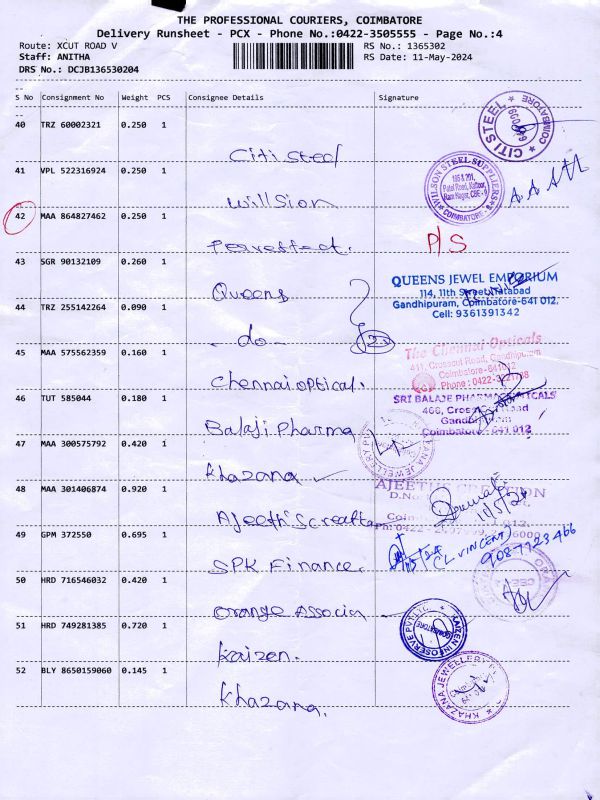 THE PROFESSIONAL COURIERS, COIMBATORE
Delivery Runsheet - PCX - Phone No.:0422-3505555 - Page No.:4
Route: XCUT ROAD V
RS No.: 1365302
Staff: ANITHA
RS Date: 11-May-2024
DRS No.: DCJB136530204
S No Consignment No Weight PCS Consignee Details Signature
40 TRZ 60002321 0.250 1
Citi Steel
CITI STEEL
COIMBATORE
41 VPL 522316924 0.250 1
Willsion
WILSON STEEL SUPPLIERS
Patel Road, Kattoor,
Ram Nagar, CBE - 9
COIMBATORE - 9
42 MAA 864827462 0.250 1
P/S
43 SGR 90132109 0.260 1
Queens
QUEENS JEWEL EMPORIUM
114, 11th Street, Tatabad
Gandhipuram, Coimbatore-641 012.
Cell: 9361391342
44 TRZ 255142264 0.090 1
- do -
45 MAA 575562359 0.160 1
Chennai optical.
The Chennai Opticals
411, Crosscut Road, Gandhipuram
Coimbatore-641012
Phone : 0422-
46 TUT 585044 0.180 1
Balaji Pharma
SRI BALAJE PHARMACEUTICALS
466, Cross Road
Coimbatore 641 012
47 MAA 300575792 0.420 1
Khazana
48 MAA 301406874 0.920 1
AJEETHS CREATION
D.No
11/5/24
49 GPM 372550 0.695 1
SPK Finance.
CL VINCENT)
908-7723466
50 HRD 716546032 0.420 1
Orange Associa
51 HRD 749281385 0.720 1
Kaizen.
KAIZEN INFOSERVE PVT LTD
COIMBATORE
52 BLY 8650159060 0.145 1
Khazana.
KHAZANA JEWELLERY